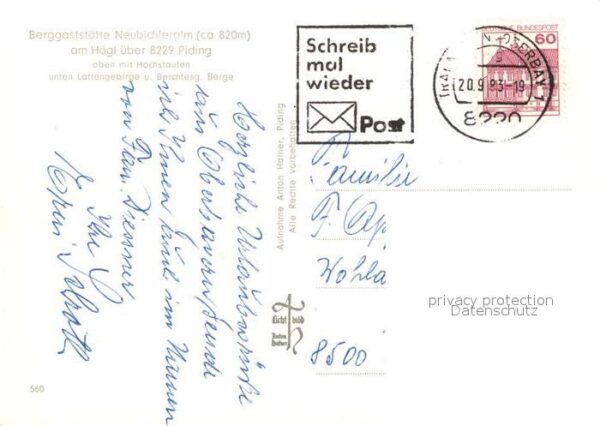 Berggaststätte Neubichleralm (ca. 820m)
am Högl über 8229 Piding
oben mit Hochstaufen
unten Lattengebirge u. Berchtesg. Berge
Schreib
mal
wieder
Post
DEUTSCHE BUNDESPOST
60
20.9.83-19
8220
Herzliche Urlaubsgrüße
aus Oberbayern sendet
ich Ihnen im Namen
von Fam.
Ihr
Aufnahme Anton Hafner, Piding
Alle Rechte vorbehalten
Licht bild
Anton
Hafner
Familie
F. Ap
8500
privacy protection
Datenschutz
560